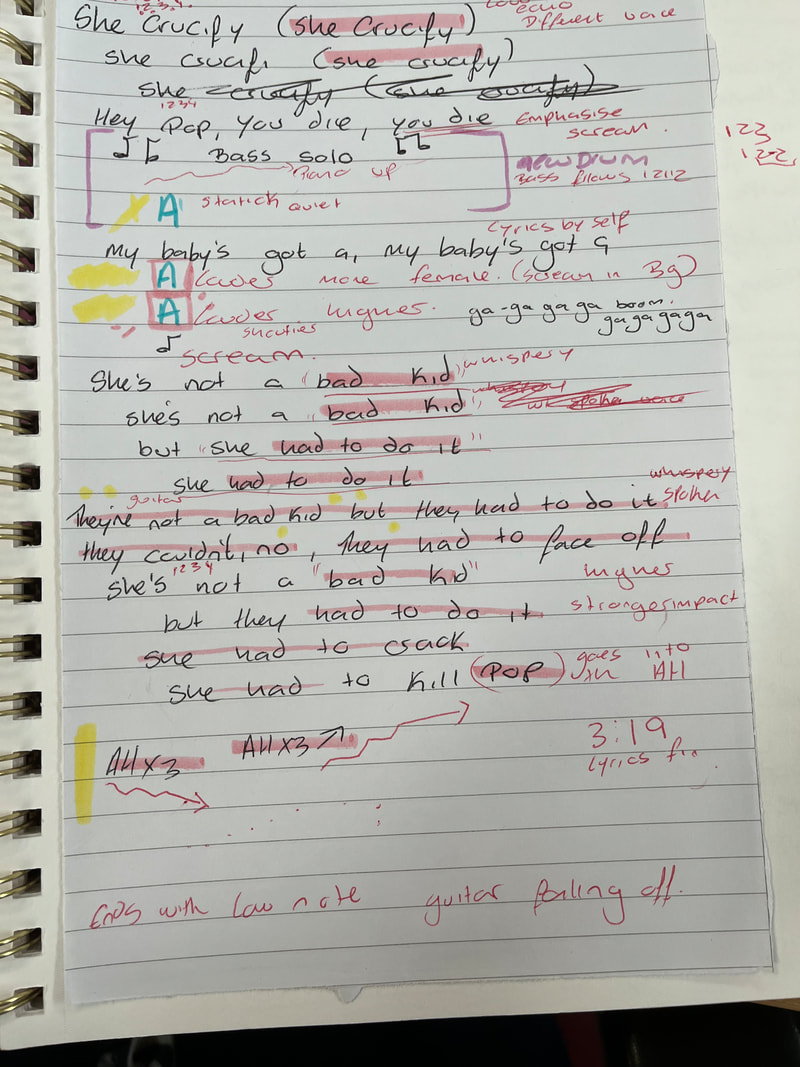 1. 2. 3. 4. echo
She Crucify (she Crucify) Different voice
she crucify (she crucify)
she crucify (she crucify)
1 2 3 4
Hey Pop, you die, you die Emphasise scream.
123
Bass solo NEW DRUM
up Bass follows 1212
A statick quiet
Lyrics by self
My baby's got a, my baby's got a
A Louder more female. (scream in Bg)
A Louder higher. ga-ga ga ga boom.
ga ga ga ga
scream.
She's not a "bad kid" whispery
she's not a "bad kid" spoken voice
but "she had to do it"
she had to do it
guitar whispery
They're not a bad kid but they had to do it spoken
they couldn't, no, they had to face off
1 2 3 4
she's not a "bad kid" higher
but they had to do it stronger impact
she had to crack
she had to kill (Pop) goes into
AH
AH x3 AH x3 3:19
Lyrics
Ends with low note guitar falling off.